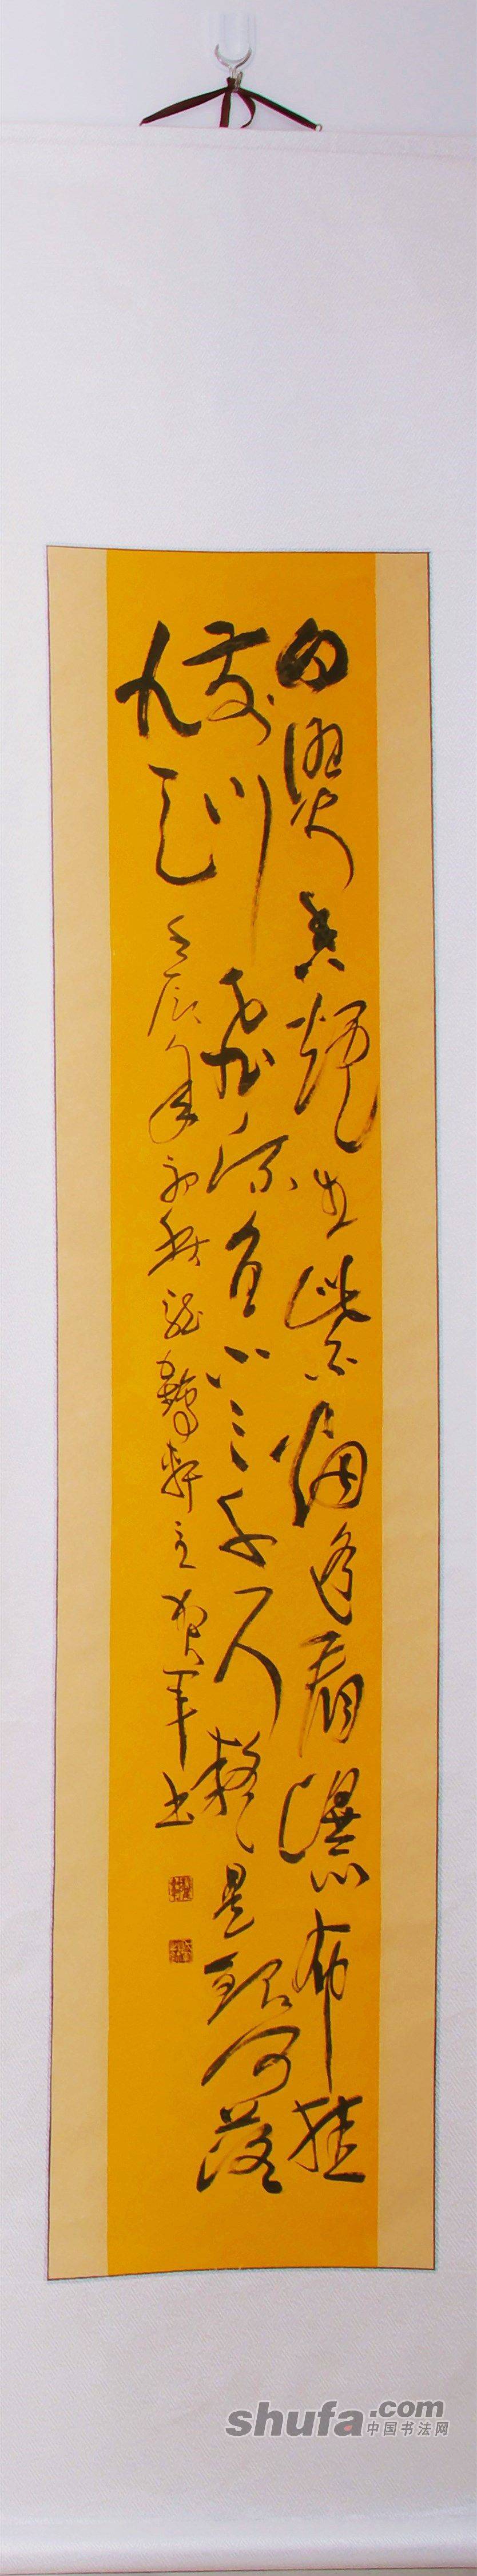 日照香炉生紫烟遥看瀑布挂
前川飞流直下三千尺疑是银河落
九天
壬辰年初秋龙鹤轩主贺军书
shufa.com
中国书法网